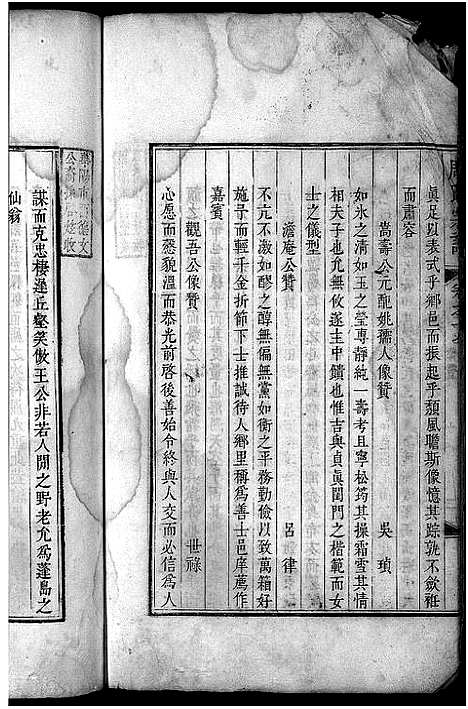 真足以表式乎鄉邑而振起乎頹風瞻斯像憶其踪孰不斂衽
而肅容
嵩壽公元配姚孺人像贊 吳瑱
如氷之清如玉之瑩專靜純一壽考且寧松筠其操霜雪其情
相夫子也允無攸遂主中饋也惟吉與貞真閨門之楷範而女
士之儀型
澹庵公贊 呂律
不亢不激如醪之醇無偏無黨如衡之平務勤儉以致萬箱好
施予而輕千金折節下士推誠待人鄉里稱為善士邑庠薦作
嘉賓
觀吾公像贊 世祿
心愿而慤貌溫而恭光前啓後善始令終與人交而必信為人
謀而克忠棲遲丘壑笑傲王公非若人間之野老允為蓬島之
仙翁